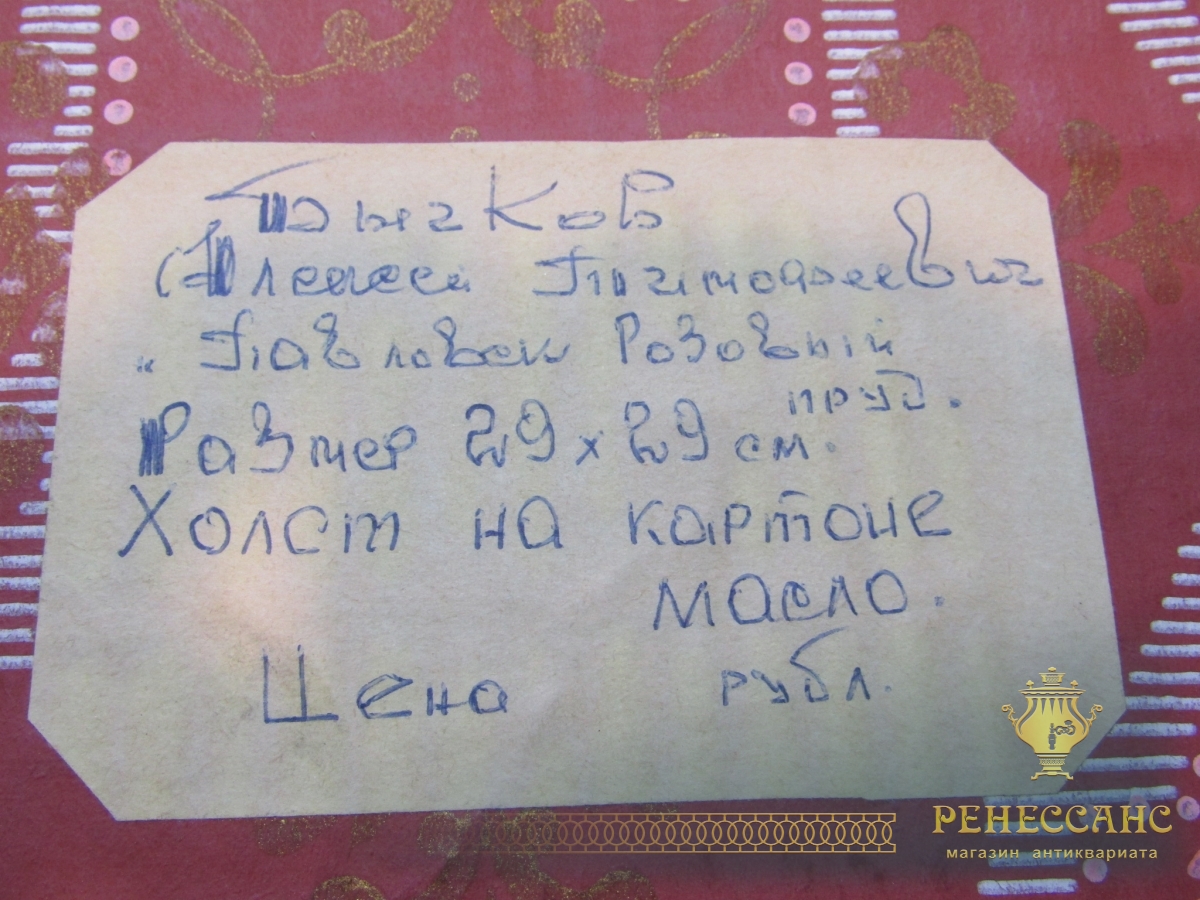 Бычков
Алексей Тимофеевич
" Павловск Розовый
пруд.
Размер 29 x 29 см.
Холст на картоне
масло.
Цена рубл.
РЕНЕССАНС
магазин антиквариата